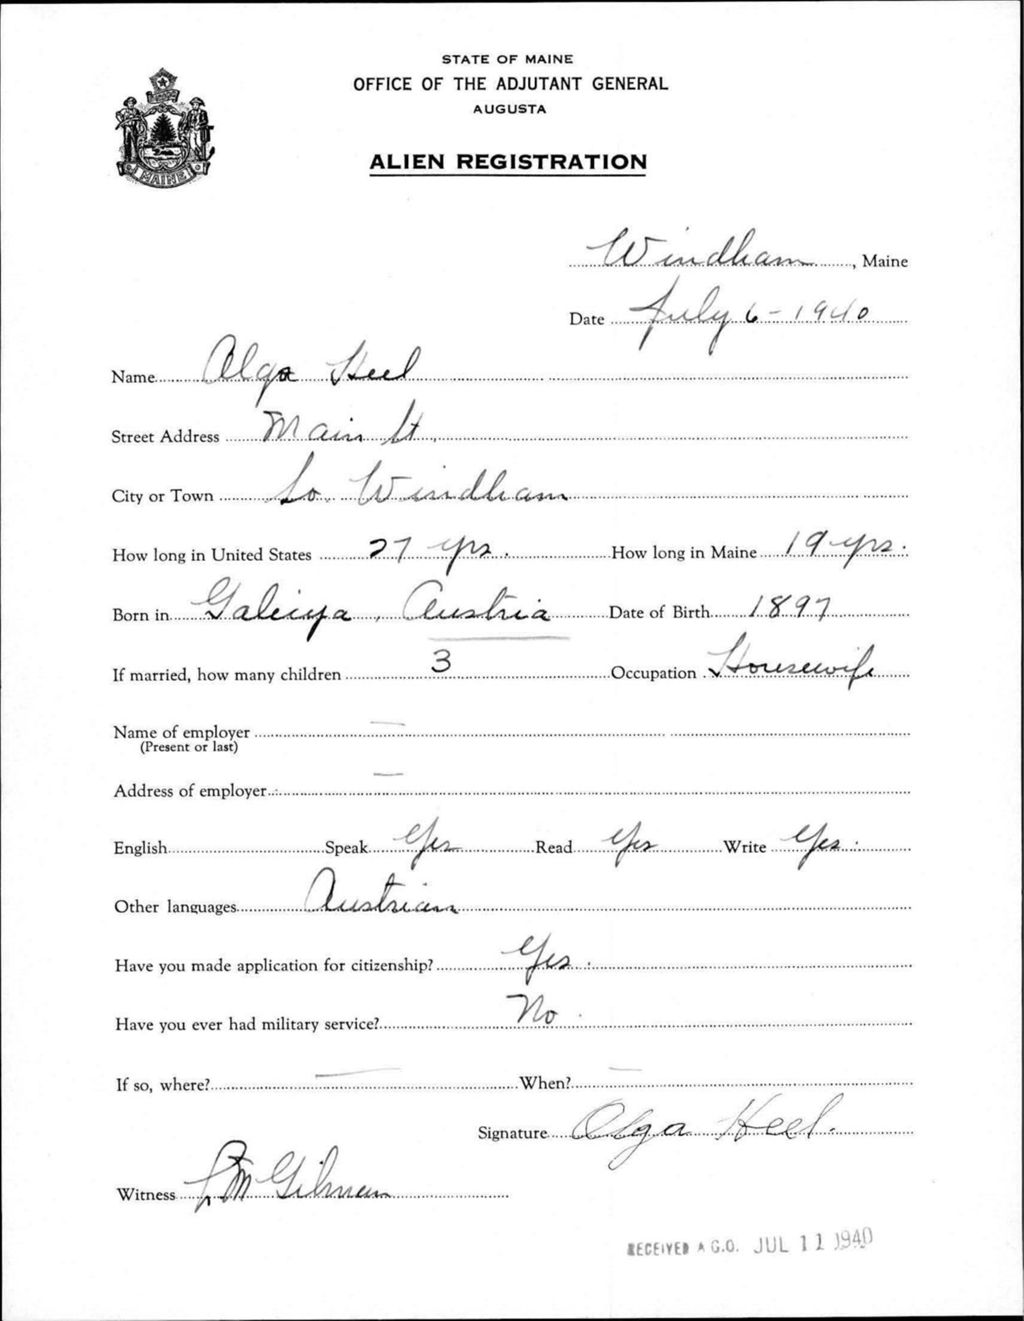 STATE OF MAINE
OFFICE OF THE ADJUTANT GENERAL
AUGUSTA
ALIEN REGISTRATION
MAINE
Windham, Maine
Date July 6-1940
Name Olga Heel
Street Address Main St.
City or Town So. Windham
How long in United States 27 yrs. How long in Maine 19 yrs.
Born in Galeiya, Austria Date of Birth 1897
If married, how many children 3 Occupation Housewife
Name of employer —
(Present or last)
Address of employer —
English Speak Yes Read Yes Write Yes.
Other languages Austrian
Have you made application for citizenship? Yes.
Have you ever had military service? No.
If so, where? — When? —
Signature Olga Heel.
Witness L M Gilman
RECEIVED A.G.O. JUL 11 1940